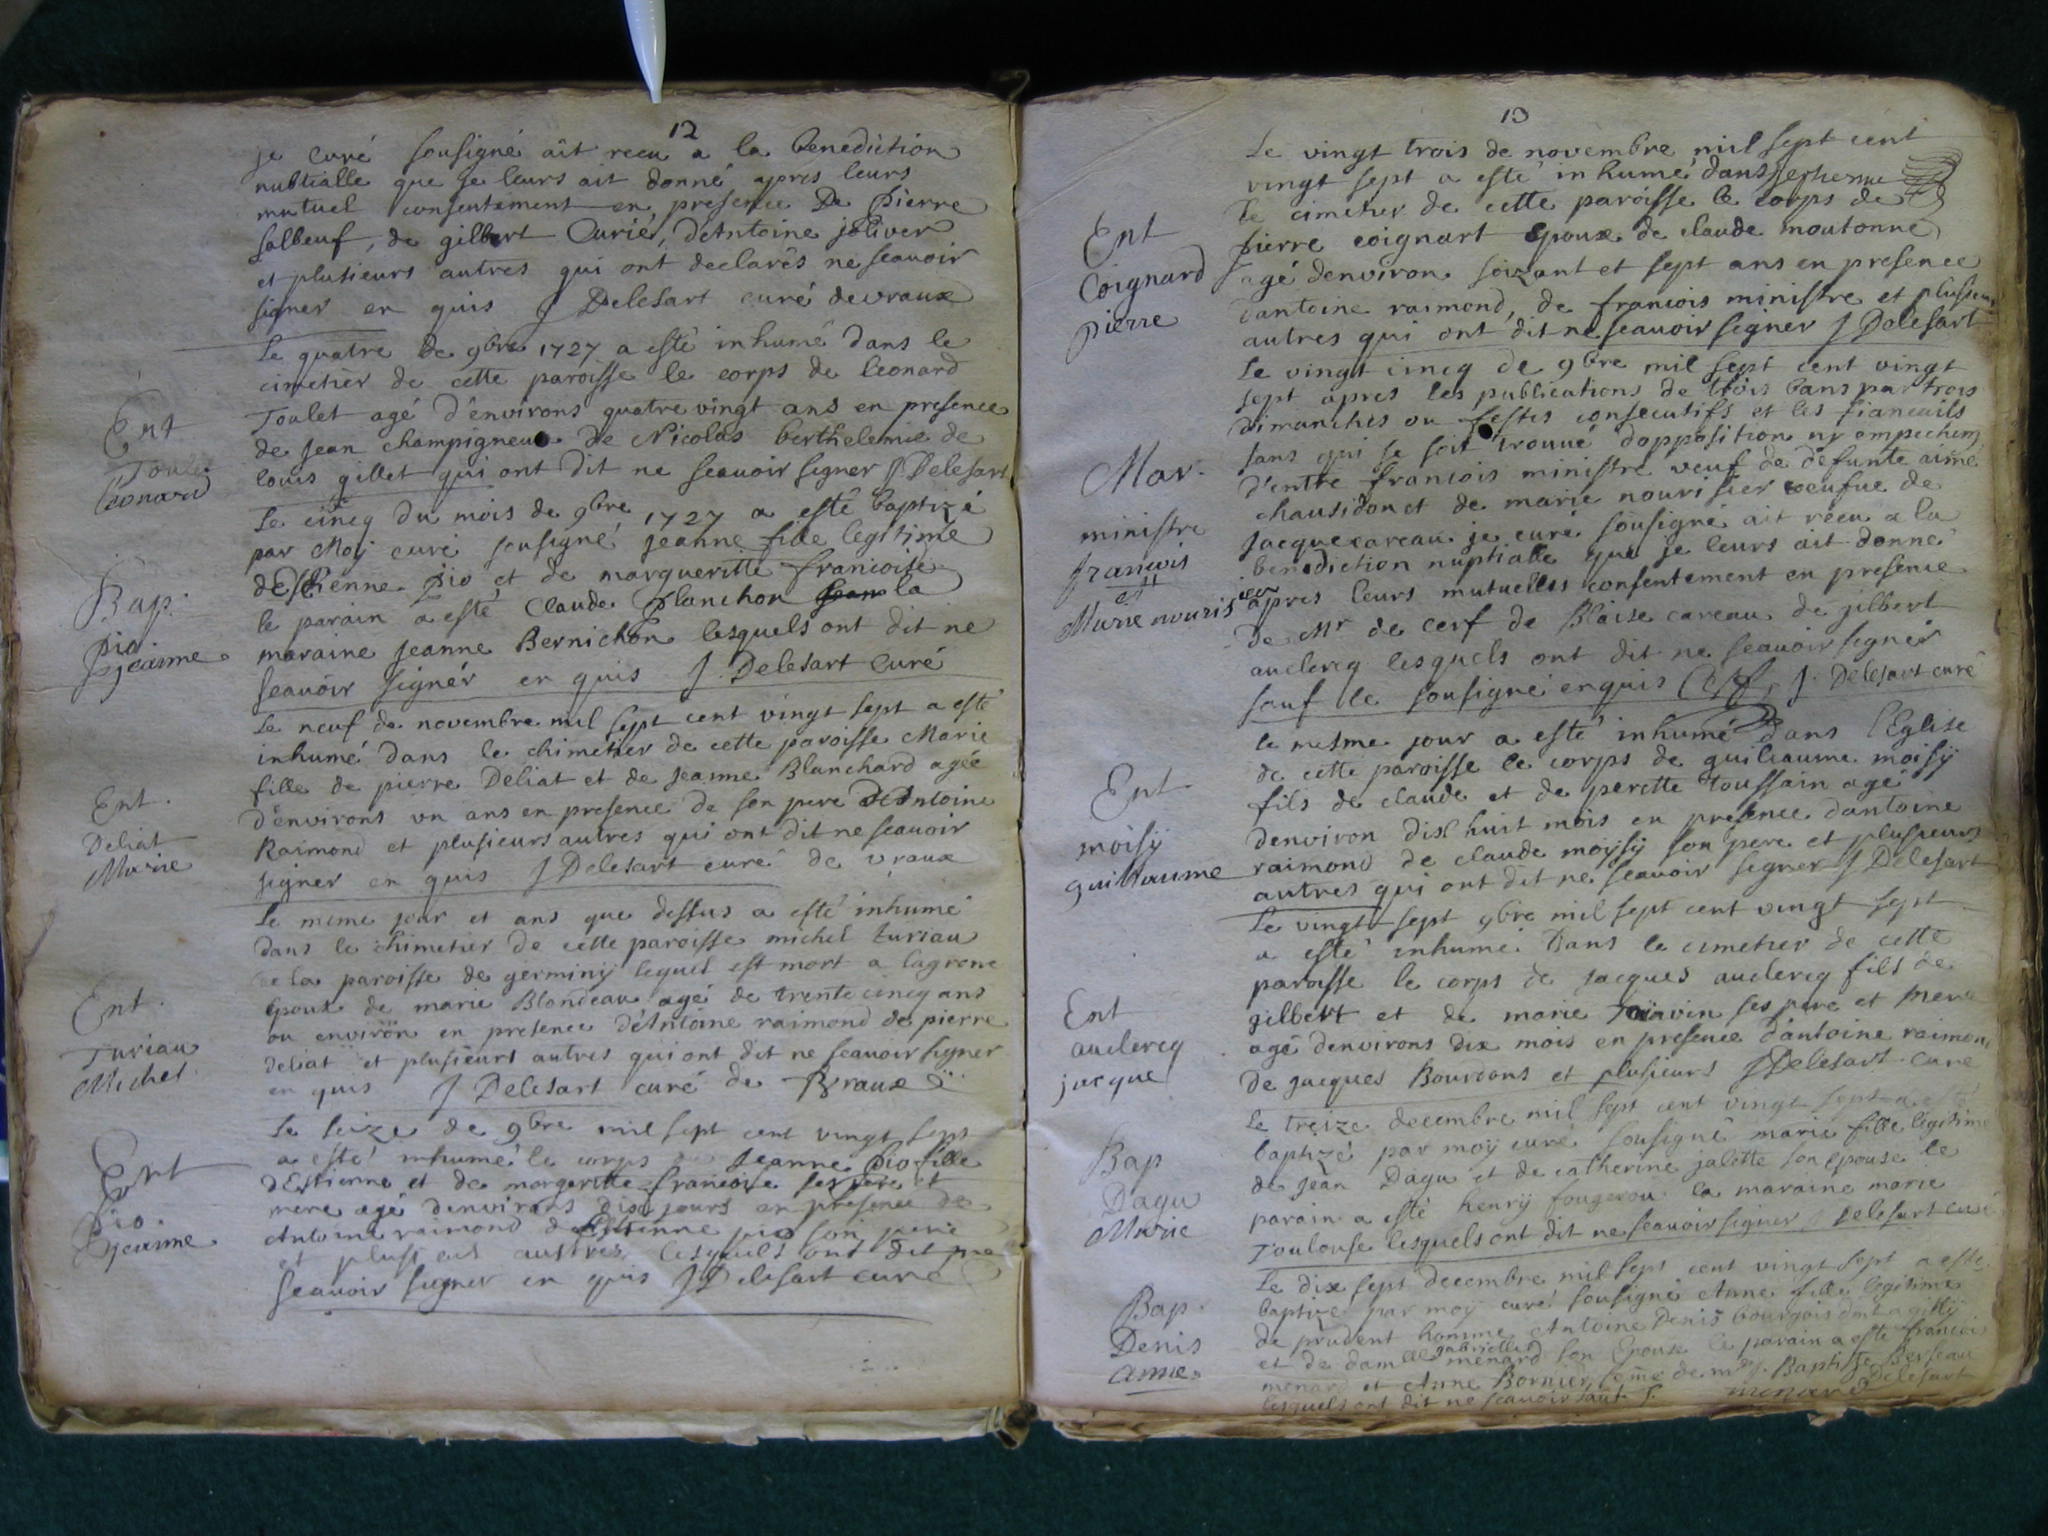 12
je curé sousigné aït recu a la benediction
nubtialle que je leurs ait donné apres leurs
mutuel consentement en presence De pierre
salbeuf, de gilbert Curié, d'Antoine joliver
et plusieurs autres qui ont declarés ne scavoir
signer en quis J Delesart curé de vraux
Le quatre de 9bre 1727 a esté inhumé dans le
cimetier de cette paroisse le corps de leonard
Toulet agé d'environs quatre vingt ans en presence
de jean champigneu de Nicolas berthelemie de
louis gillet qui ont dit ne scavoir signer J Delesart
Ent
Toulet
leonard
Le cincq du mois de 9bre 1727 a esté baptizé
par Moy curé sousigné jeanne fille legitime
d'Estienne pio et de margueritte francoise
le parain a esté Claude planchon la
maraine jeanne Bernichon lesquels ont dit ne
scavoir signér en quis J. Delesart Curé
Bap.
pio
jeanne
Le neuf de novembre mil sept cent vingt sept a esté
inhumé dans le chimetier de cette paroisse Marie
fille de pierre Deliat et de jeanne Blanchard agée
d'environs un ans en presence de son pere d'Antoine
Raimond et plusieurs autres qui ont dit ne scavoir
signer en quis J Delesart curé de vraux
Ent.
Deliat
Marie
Le meme jour et ans que dessus a esté inhumé
dans le chimetier de cette paroisse michel turiau
de la paroisse de germiny lequel est mort a lagrone
epoux de marie Blondeau agé de trente cincq ans
ou environ en presence d'Antoine raimond de pierre
deliat et plusieurs autres qui ont dit ne scavoir signer
en quis J Delesart curé de Vraux
Ent.
Turiau
Michel
Le seize de 9bre mil sept cent vingt sept
a esté inhumé le corps de Jeanne pio fille
d'Estienne et de margeritte francoise ses pere et
mere agé denvirons dix jours en presence de
Antoine raimond d'Estienne pio son pere
et plusieurs austres lesquels ont dit ne
scavoir signer en quis J Delesart curé
Ent
pio.
jeanne
13
Le vingt trois de novembre mil sept cent
vingt sept a esté inhumé dans
le cimetier de cette paroisse le corps de
pierre coignart epoux de claude moutonne
agé denviron soizant et sept ans en presence
dantoine raimond, de francois ministre et plusieurs
autres qui ont dit ne scavoir signer J Delesart
Ent
Coignard
pierre
Le vingt cincq de 9bre mil sept cent vingt
sept apres les publications de trois bans par trois
dimanches ou festes consecutifs et les fiancails
sans qui se soit trouvé dopposition ny ampechem
d'entre francois ministre veuf de defunte aimé
chausidon et de marie nourisier veufue de
jacque careau je curé sousigné ait recu a la
benediction nuptialle que je leurs ait donné
apres leurs mutuelles consentement en presence
de Mr de cerf de Blaise careau de gilbert
auclercq lesquels ont dit ne scavoir signér
sauf le sousigné enquis Cerf, J. Delesart curé
Mar.
ministre
francois
et
Marie nourisier
le mesme jour a esté inhumé dans l'Eglise
de cette paroisse le corps de guillaume moisij
fils de claude et de perette toussain agé
denviron dix huit mois en presence dantoine
raimond de claude moysij son pere et plusieurs
autres qui ont dit ne scavoir signer J Delesart
Ent
moisij
guillaume
Le vingt sept 9bre mil sept cent vingt sept
a esté inhumé Dans le cimetier de cette
paroisse le corps de jacques auclercq fils de
gilbert et de marie ses pere et mere
agé denvirons dix mois en presence dantoine raimond
de jacques Bourdons et plusieurs J Delesart curé
Ent
auclercq
jacque
Le treize decembre mil sept cent vingt sept a esté
baptizé par moy curé sousigné marie fille legitime
de jean Dagu et de catherine jalotte son epouse le
parain a esté henrij fougerou la maraine marie
Toulouse lesquels ont dit ne scavoir signer J Delesart curé
Bap
Dagu
Marie
Le dix sept decembre mil sept cent vingt sept a esté
baptizé par moy curé sousigné Anne fille legitime
de prudent homme Antoine Denis bourgois dmt a gilly
et de damlle gabrielle menard son Epouse le parain a esté francois
menard et Anne Bornier feme de mr J. Baptiste Berseau
lesquels ont dit ne scavoir sauf J. menard Delesart
Bap.
Denis
anne.